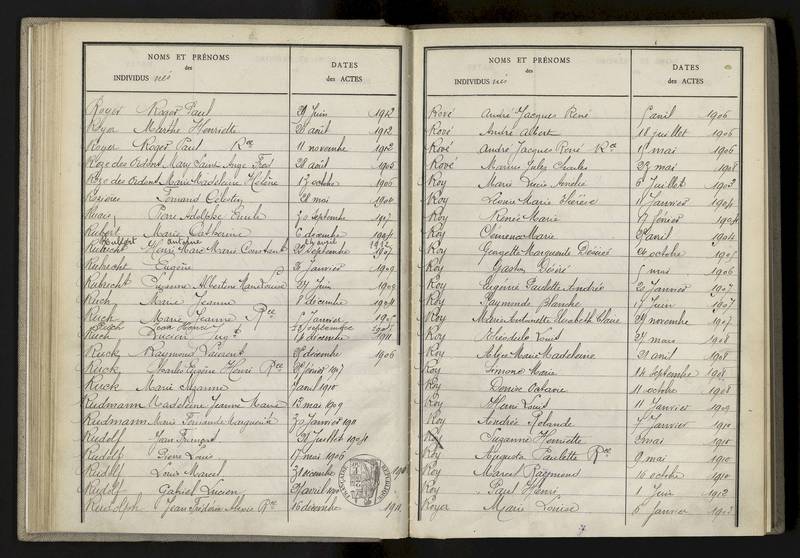 NOMS ET PRÉNOMS
des
INDIVIDUS nés
DATES
des ACTES
Royer Roger Paul 29 Juin 1912
Royer Marthe Henriette 28 août 1912
Royer Roger Paul Rce 11 novembre 1912
Roze des Ordons Mary Saint Ange 28 août 1905
Roze des Ordons Marie Madeleine Hélène 17 octobre 1906
Rozières Fernand Célestin 28 mai 1904
Pierre Adolphe Emile 30 septembre 1907
Rubert Marie Catherine 6 décembre 1904
antoine avril 1912
Rubrecht Henri Marie Constant 22 septembre 1907
Rubrecht Eugène 26 Janvier 1909
Rubrecht Albertine 24 Juin 1909
Ruch Marie Jeanne 8 décembre 1904
Ruch Marie Jeanne Rce 5 Janvier 1905
Ruch Jean Henri septembre 1908
Ruch Lucien Aug.te 14 décembre 1911
Ruck Raymond Laurent décembre 1906
Ruck Charles Eugène Henri Rce février 1907
Ruck Marie Suzanne 7 avril 1910
Rudmann Madeleine Jeanne Marie 12 mai 1909
Rudmann Marie Fernande Marguerite 30 Janvier 1911
Rudolf Jean François 27 Juillet 1904
Rudolf Pierre Louis 17 mai 1906
Rudolf Louis Marcel 31 décembre
Rudolf Gabriel Lucien avril
Rudolph Jean Frédéric Alexis Rce 16 décembre 1911
NOMS ET PRÉNOMS
des
INDIVIDUS nés
DATES
des ACTES
Rové André Jacques René 5 avril 1906
Rové André Albert 18 juillet 1906
Rové André Jacques René Rce mai 1906
Rové Marius Jules Charles 23 mai 1908
Roy Marie Lucie Amélie 6 Juillet 1903
Roy Léonie Marie Thérèse 11 Janvier 1904
Roy Renée Marie 17 février 1904
Roy Clémence Marie avril 1904
Roy Georgette Marguerite Désirée 24 octobre 1905
Roy Gaston Désiré 5 mai 1906
Roy Eugénie Paulette Andrée 20 Janvier 1907
Roy Raymonde Blanche 17 Juin 1907
Roy Marie Antoinette Elisabeth Claire 29 novembre 1907
Roy Théodule Louis 24 mars 1908
Roy Alice Marie Madeleine 21 avril 1908
Roy Simone Marie 14 septembre 1908
Roy Denise Octavie 11 octobre 1908
Roy Henri Louis 11 Janvier 1909
Roy Andrée Rolande 7 Janvier 1910
Roy Suzanne Henriette 3 mai 1910
Roy Augusta Paulette Rce 9 mai 1910
Roy Marcel Raymond 16 octobre 1910
Roy Paul Henri 1 Juin 1912
Royer Marie Louise 5 Janvier 1903